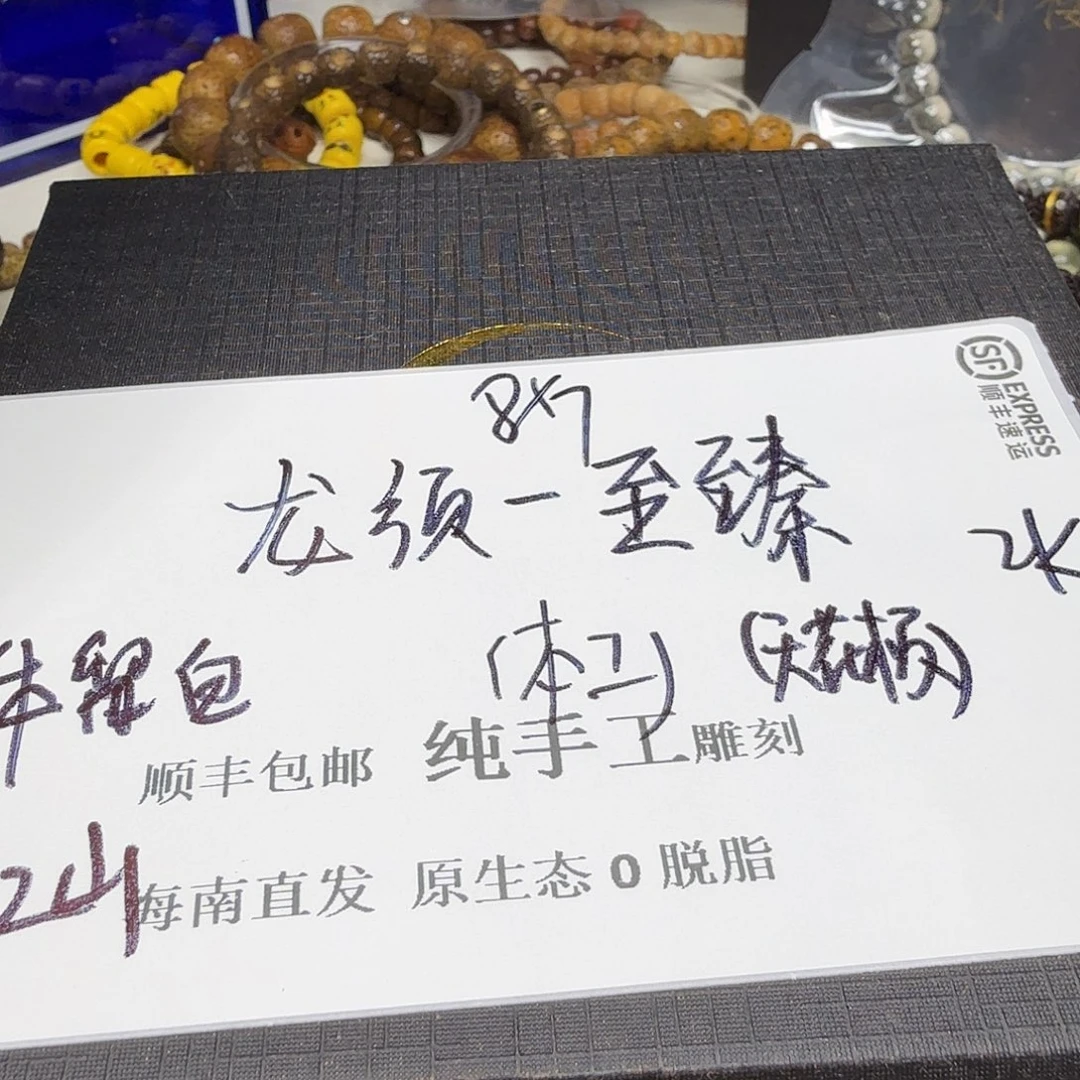 SF EXPRESS
顺丰速运
8×7
龙须一至臻
2K
留白 (本工) (天花板)
顺丰包邮 纯手工雕刻
海南直发 原生态0脱脂